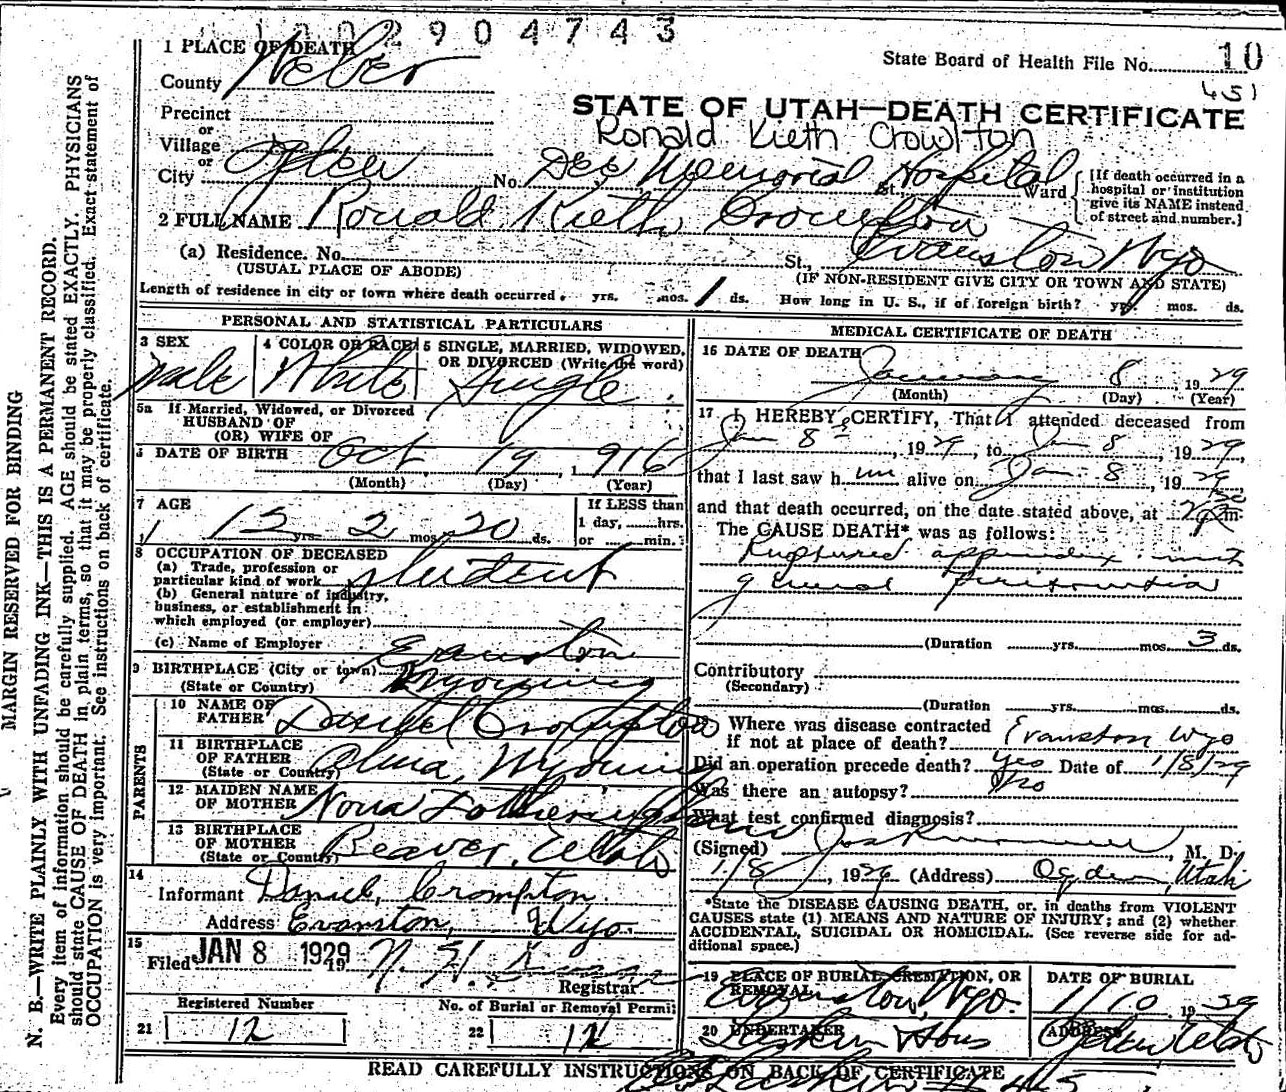 1002904743
1 PLACE OF DEATH
State Board of Health File No. 10
County Weber
451
STATE OF UTAH—DEATH CERTIFICATE
Precinct
or
Ronald Kieth Crowlton
Village
or
City Ogden No. Dee Memorial Hospital St. Ward
[If death occurred in a hospital or institution give its NAME instead of street and number.]
2 FULL NAME Ronald Kieth Crompton
(a) Residence. No. St., Evanston Wyo
(USUAL PLACE OF ABODE) (IF NON-RESIDENT GIVE CITY OR TOWN AND STATE)
Length of residence in city or town where death occurred. yrs. mos. 1 ds. How long in U. S., if of foreign birth? yrs. mos. ds.
PERSONAL AND STATISTICAL PARTICULARS
3 SEX Male
4 COLOR OR RACE White
5 SINGLE, MARRIED, WIDOWED, OR DIVORCED (Write the word) Single
5a If Married, Widowed, or Divorced
HUSBAND OF
(OR) WIFE OF
6 DATE OF BIRTH Oct 19, 1916
(Month) (Day) (Year)
7 AGE 12 yrs. 2 mos. 20 ds.
If LESS than
1 day, hrs.
or min.
8 OCCUPATION OF DECEASED
(a) Trade, profession or
particular kind of work student
(b) General nature of industry,
business, or establishment in
which employed (or employer)
(c) Name of Employer
9 BIRTHPLACE (City or town) Evanston
(State or Country) Wyoming
PARENTS
10 NAME OF FATHER Daniel Crompton
11 BIRTHPLACE OF FATHER (State or Country) Alma, Wyoming
12 MAIDEN NAME OF MOTHER Nora Fotheringham
13 BIRTHPLACE OF MOTHER (State or Country) Beaver, Utah
14
Informant Daniel Crompton
Address Evanston, Wyo.
15 Filed JAN 8 1929 19 N. H.
Registrar
Registered Number No. of Burial or Removal Permit
21 12 22 12
MEDICAL CERTIFICATE OF DEATH
16 DATE OF DEATH
January 8, 1929
(Month) (Day) (Year)
17 I HEREBY CERTIFY, That I attended deceased from
Jan 8, 1929, to Jan 8, 1929,
that I last saw him alive on Jan 8, 1929
and that death occurred, on the date stated above, at m.
The CAUSE DEATH* was as follows:
Ruptured appendix with
general peritonitis
(Duration yrs. mos. 3 ds.
Contributory
(Secondary)
(Duration yrs. mos. ds.
18 Where was disease contracted
if not at place of death? Evanston Wyo
Did an operation precede death? Yes Date of 1/8/29
Was there an autopsy? No
What test confirmed diagnosis?
(Signed) , M. D.
1/8, 1929 (Address) Ogden, Utah
*State the DISEASE CAUSING DEATH, or. in deaths from VIOLENT
CAUSES state (1) MEANS AND NATURE OF INJURY; and (2) whether
ACCIDENTAL, SUICIDAL OR HOMICIDAL. (See reverse side for ad-
ditional space.)
19 PLACE OF BURIAL CREMATION, OR REMOVAL Evanston, Wyo.
DATE OF BURIAL 1/10 1929
20 UNDERTAKER Larkin & Sons
ADDRESS Ogden Utah
READ CAREFULLY INSTRUCTIONS ON BACK OF CERTIFICATE
MARGIN RESERVED FOR BINDING
N. B.—WRITE PLAINLY WITH UNFADING INK—THIS IS A PERMANENT RECORD.
Every item of information should be carefully supplied. AGE should be stated EXACTLY. PHYSICIANS
should state CAUSE OF DEATH in plain terms, so that it may be properly classified. Exact statement of
OCCUPATION is very important. See instructions on back of certificate.